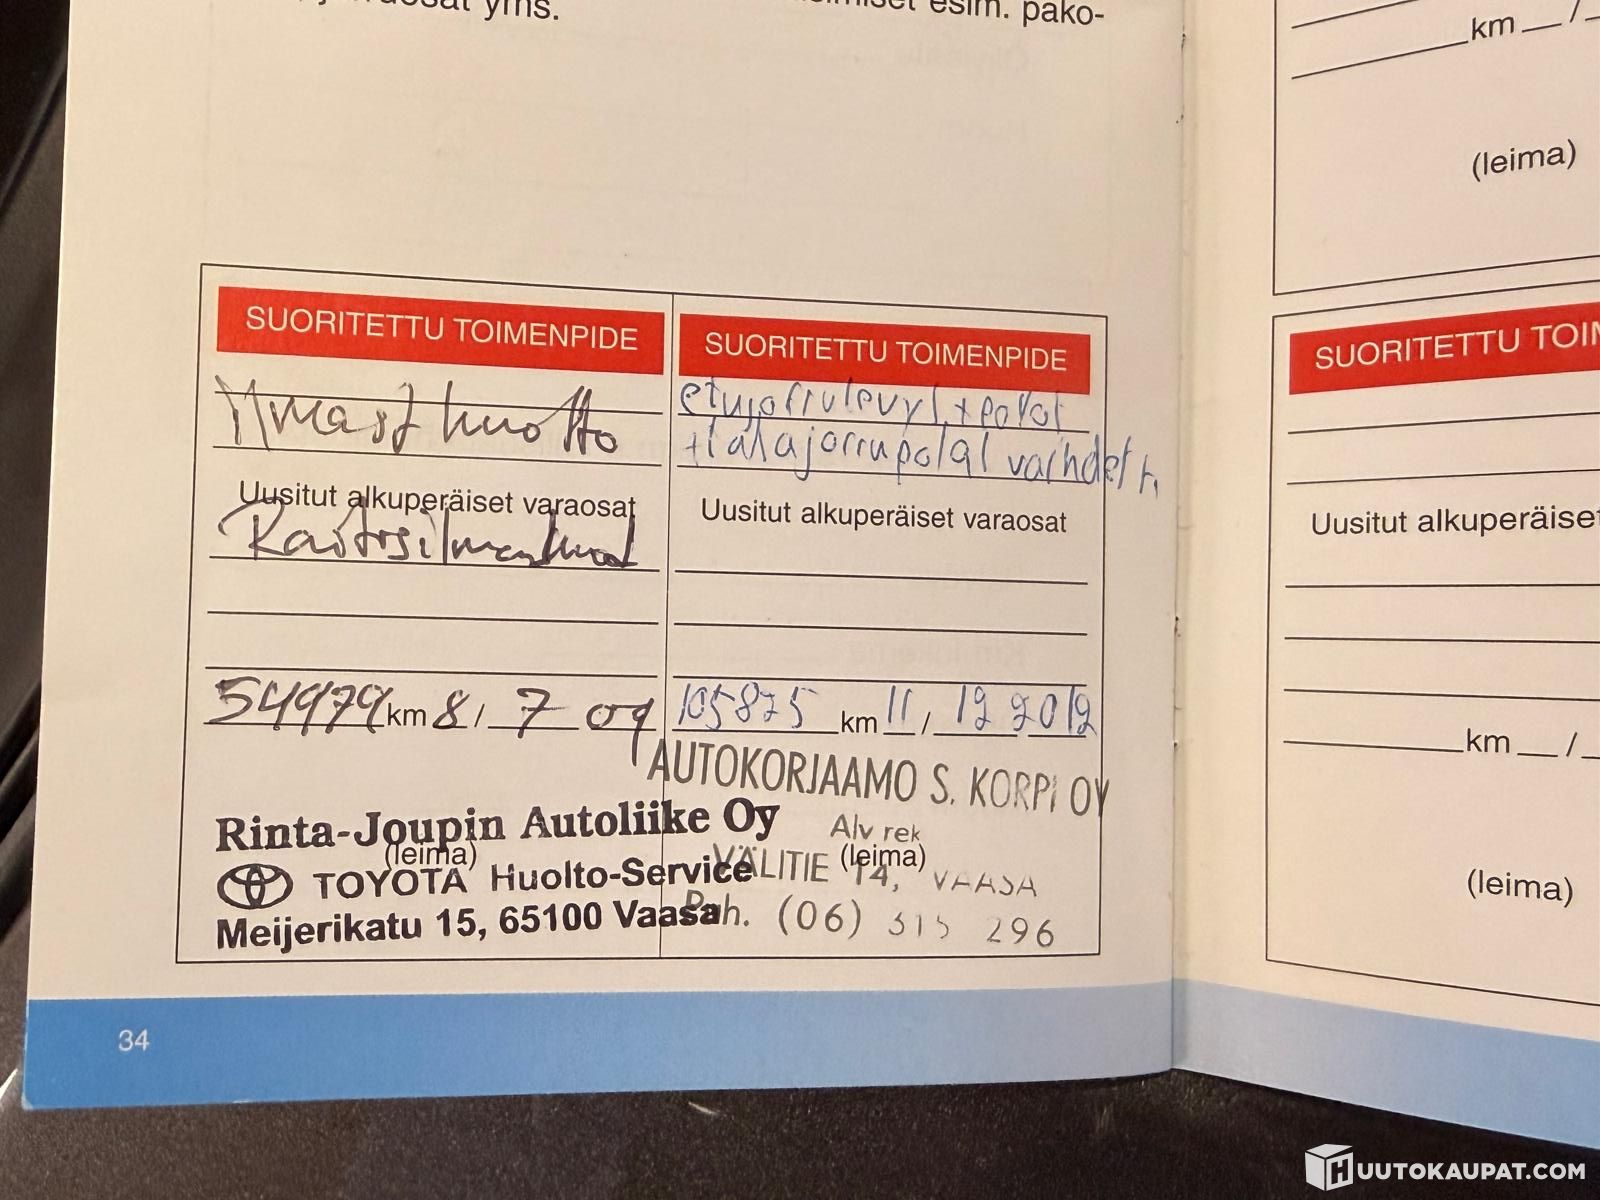 yms.
esim. pako-
SUORITETTU TOIMENPIDE
Ilmast huolto
Uusitut alkuperäiset varaosat
54979 km 8 / 7 09
Rinta-Joupin Autoliike Oy
(leima)
TOYOTA Huolto-Service
Meijerikatu 15, 65100 Vaasa
SUORITETTU TOIMENPIDE
etujarrulevyt + palat
+ takajarrupalat vaihdettu
Uusitut alkuperäiset varaosat
105875 km 11 / 12 2012
AUTOKORJAAMO S. KORPI OY
Alv rek
(leima)
VÄLITIE 14, VAASA
Puh. (06) 315 296
34
km /
(leima)
SUORITETTU TOIM
Uusitut alkuperäise
km /
(leima)
HUUTOKAUPAT.COM